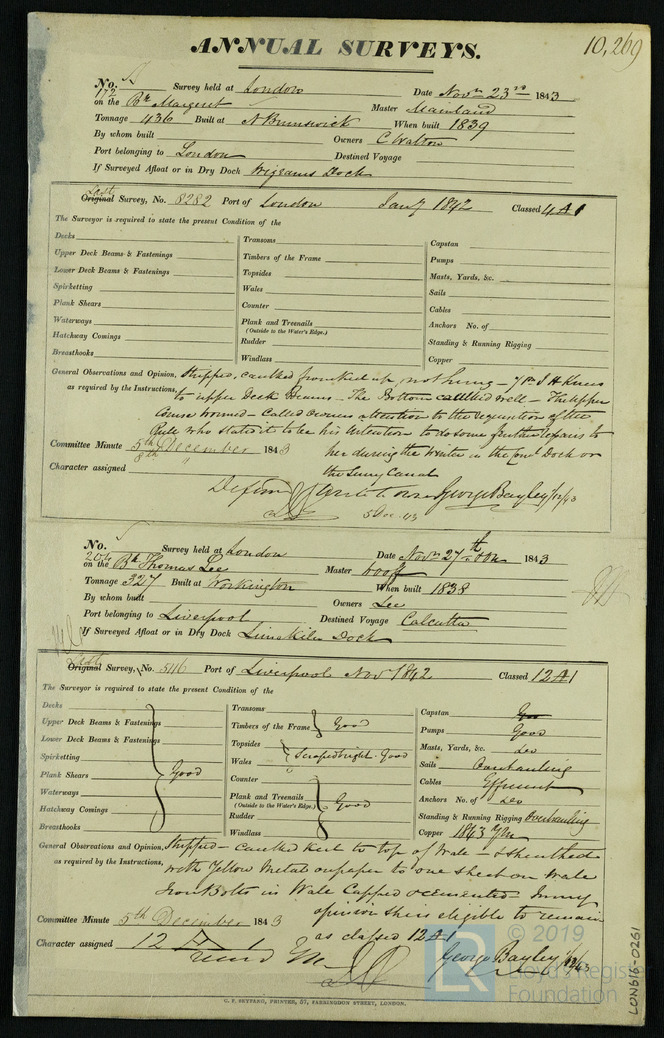 ANNUAL SURVEYS.
10,269
No. 172 Survey held at London Date Novr 23rd 1843
on the Bk Margaret Master Mainland
Tonnage 436 Built at N Brunswick When built 1839
By whom built Owners C Walton
Port belonging to London Destined Voyage
If Surveyed Afloat or in Dry Dock Wigrams Dock
Last
Original Survey, No. 8282 Port of London Jany 1842 Classed 4 A 1
The Surveyor is required to state the present Condition of the
Decks Transoms Capstan
Upper Deck Beams & Fastenings Timbers of the Frame Pumps
Lower Deck Beams & Fastenings Topsides Masts, Yards, &c.
Spirketting Wales Sails
Plank Shears Counter Cables
Waterways Plank and Treenails (Outside to the Water's Edge.) Anchors No. of
Hatchway Comings Rudder Standing & Running Rigging
Breasthooks Windlass Copper
General Observations and Opinion, Stripped, caulked from keel up, nothing — 7 Pr I H Knees
as required by the Instructions, to upper Deck Beams — The Bottom caulked well — The upper
Course wormed — Called owners attention to the requisition of the
Rule who stated it to be his intention to do some further repairs to
her during the Winter in the Coml Dock or
the Surry Canal
Committee Minute 5th December 1843
8th "
Character assigned
George Bayley 1/12/43
5 Dec 43
No. 206 Survey held at London Date Novr 27th 1843
on the Bk Thomas Lee Master
Tonnage 327 Built at Workington When built 1838
By whom built Owners Lee
Port belonging to Liverpool Destined Voyage Calcutta
If Surveyed Afloat or in Dry Dock Limekiln Dock
Last
Original Survey, No. 5116 Port of Liverpool Nov 1842 Classed 12 A 1
The Surveyor is required to state the present Condition of the
Decks Transoms Capstan
Upper Deck Beams & Fastenings Timbers of the Frame Good Pumps Good
Lower Deck Beams & Fastenings Topsides Masts, Yards, &c. Do
Spirketting Wales Scraped bright. Good Sails Overhauling
Plank Shears Good Counter Cables Efficient
Waterways Plank and Treenails (Outside to the Water's Edge.) Good Anchors No. of Do
Hatchway Comings Rudder Standing & Running Rigging Overhauling
Breasthooks Windlass Copper 1843 YM
General Observations and Opinion, Stripped — caulked keel to top of Wale — & sheathed
as required by the Instructions, with Yellow Metal on paper to one sheet on Wale
Iron Bolts in Wale Capped & cemented In my
opinion she is eligible to remain
as classed 12 A 1
Committee Minute 5th December 1843
Character assigned 12 A 1
George Bayley 1/12/43
C. F. SEYFANG, PRINTER, 57, FARRINGDON STREET, LONDON.
LON616-0261
© 2019
LR
Lloyd's Register
Foundation